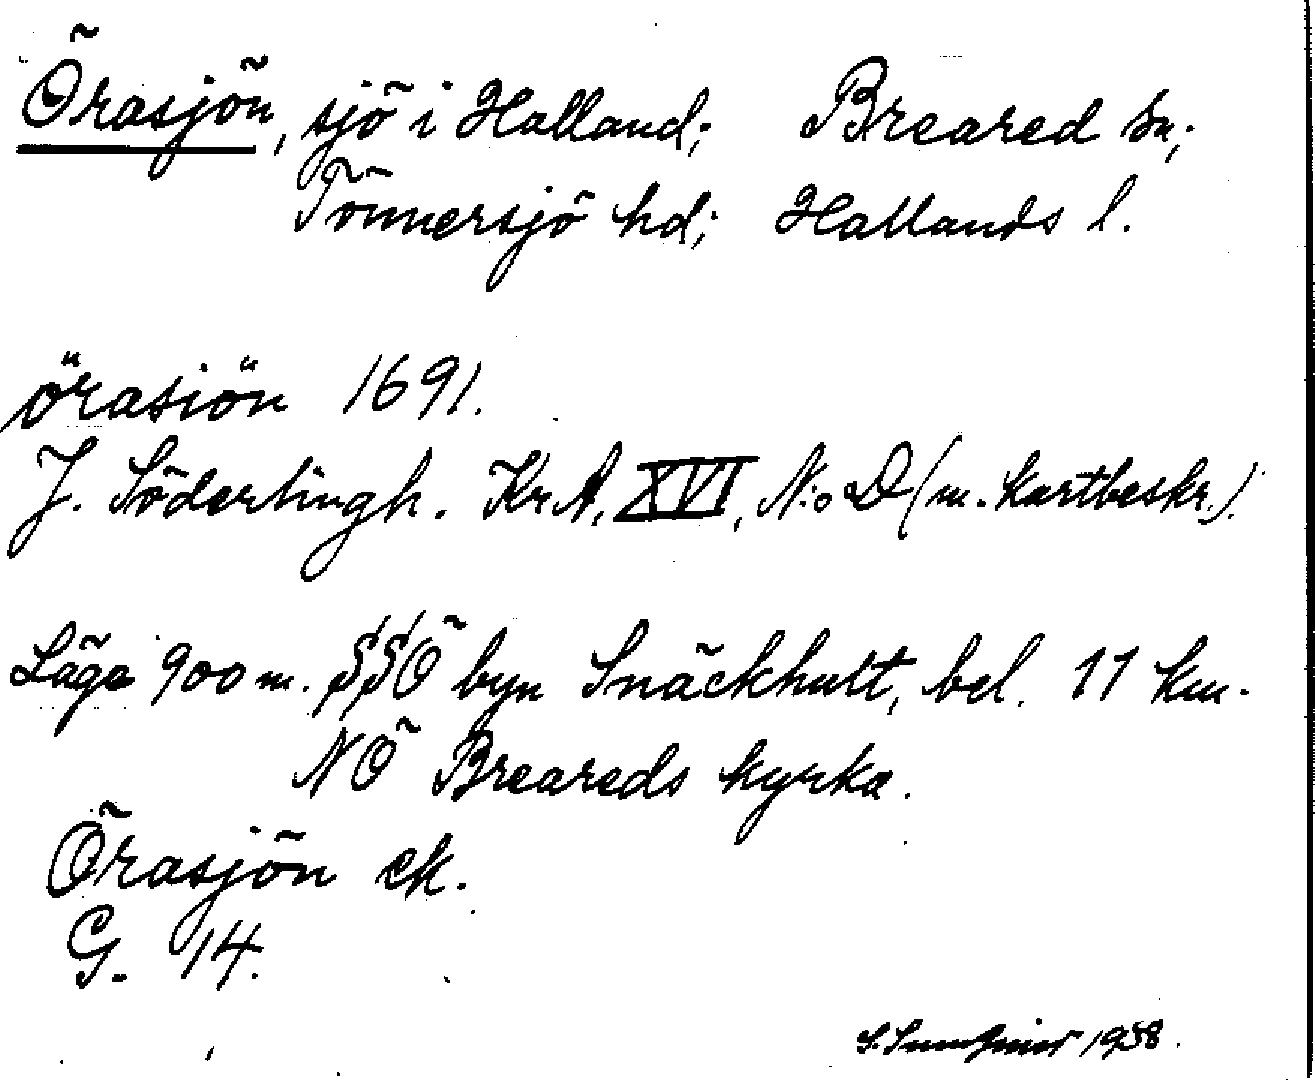 Örasjön, sjö i Halland; Breared sn;
Tönnersjö hd; Hallands l.
örasiön 1691.
J. Södertingh. Kr.A. XVI, N:o D (m. kartbeskr.).
Läge 900 m. SSÖ byn Snäckhult, bel. 11 km.
NÖ Breareds kyrka.
Örasjön ek.
G. 14.
1938.